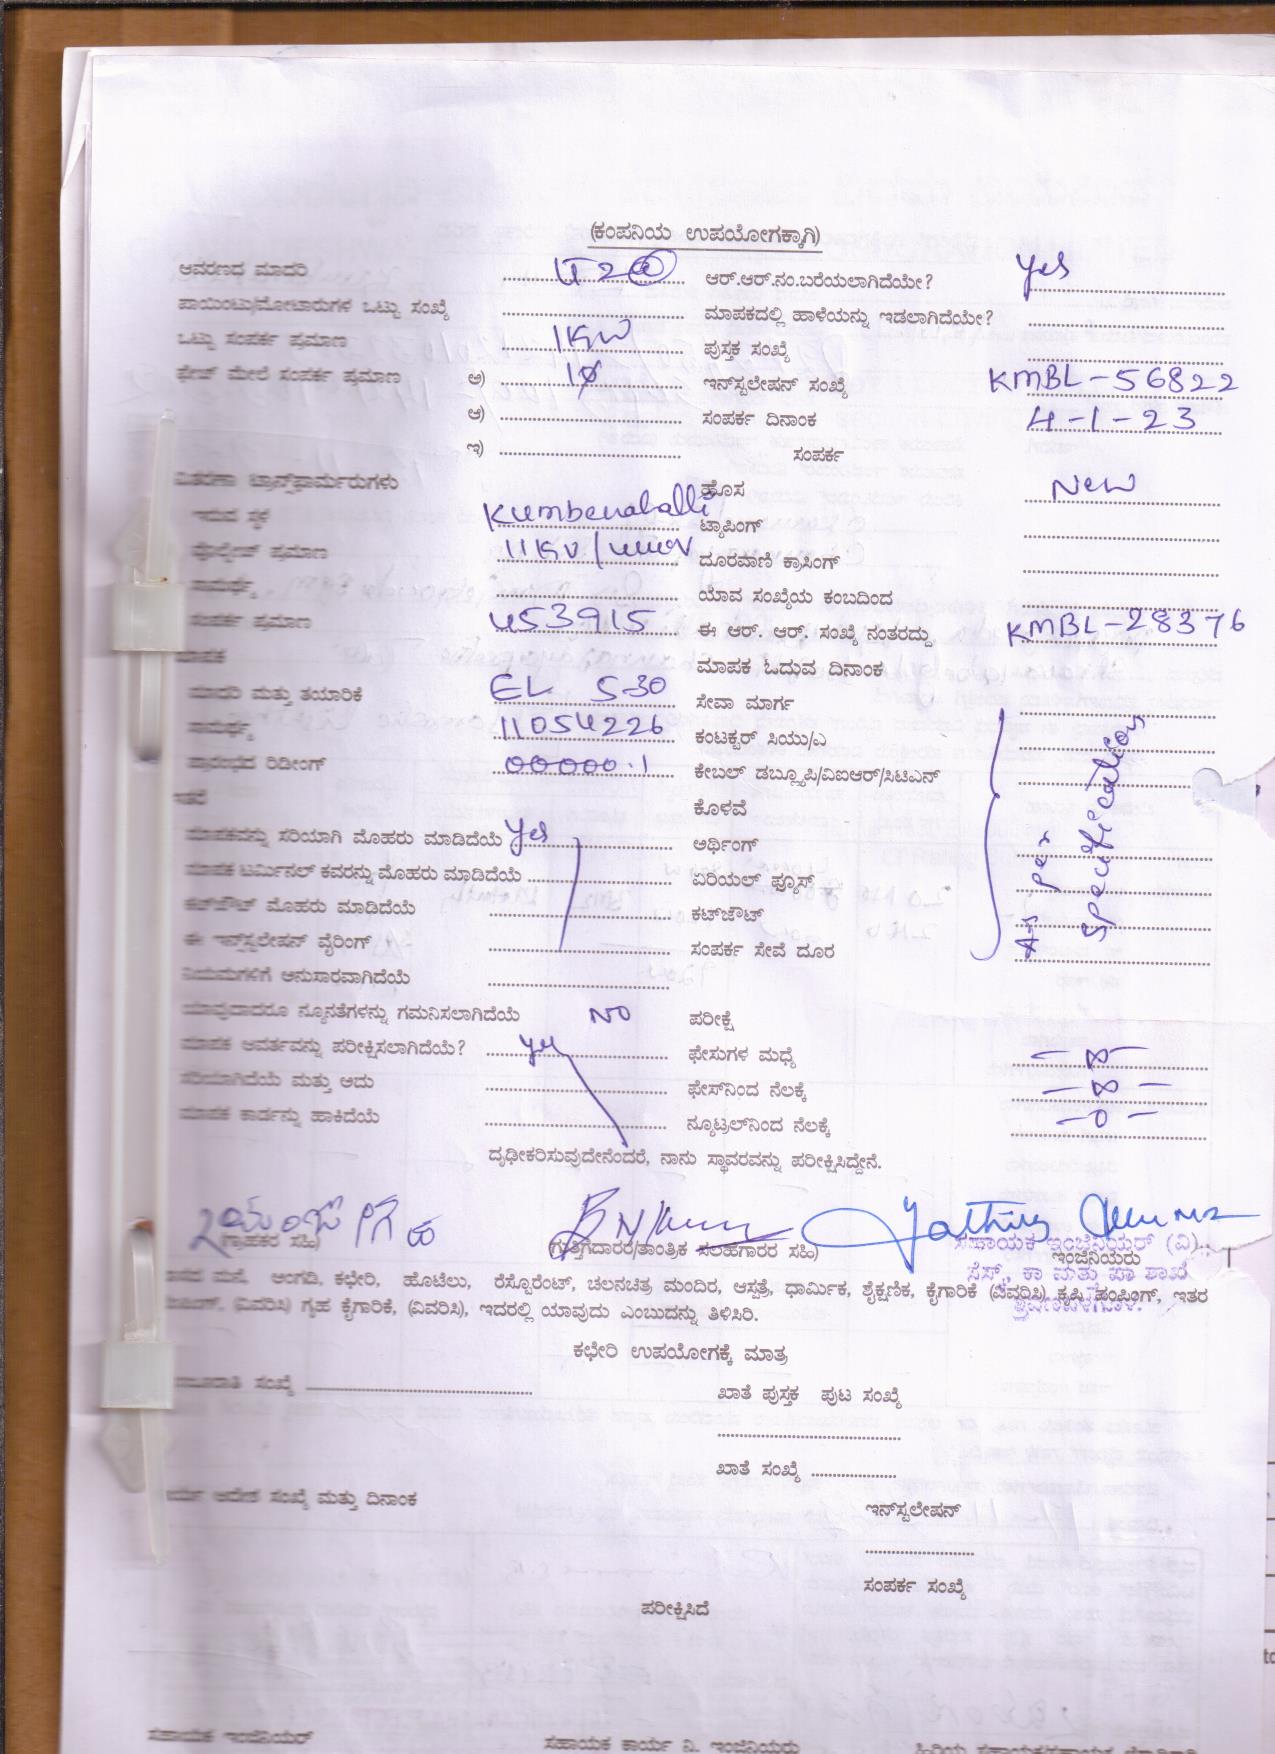 (ಕಂಪನಿಯ ಉಪಯೋಗಕ್ಕಾಗಿ)
ಆವರಣದ ಮಾದರಿ ಆರ್.ಆರ್.ನಂ.ಬರೆಯಲಾಗಿದೆಯೇ? Yes
ಪಾಯಿಂಟು/ಮೋಟಾರುಗಳ ಒಟ್ಟು ಸಂಖ್ಯೆ ಮಾಪಕದಲ್ಲಿ ಹಾಳೆಯನ್ನು ಇಡಲಾಗಿದೆಯೇ?
ಒಟ್ಟು ಸಂಪರ್ಕ ಪ್ರಮಾಣ 1KW ಪುಸ್ತಕ ಸಂಖ್ಯೆ
ಫೇಜ್ ಮೇಲೆ ಸಂಪರ್ಕ ಪ್ರಮಾಣ ಅ) 1ø ಇನ್‌ಸ್ಟಲೇಷನ್ ಸಂಖ್ಯೆ KMBL-56822
ಆ) ಸಂಪರ್ಕ ದಿನಾಂಕ 4-1-23
ಇ) ಸಂಪರ್ಕ
ವಿತರಣಾ ಟ್ರಾನ್ಸ್‌ಫಾರ್ಮರುಗಳು ಹೊಸ New
ಇರುವ ಸ್ಥಳ Kumbenahalli ಟ್ಯಾಪಿಂಗ್
ವೋಲ್ಟೇಜ್ ಪ್ರಮಾಣ 11KV/ ದೂರವಾಣಿ ಕ್ರಾಸಿಂಗ್
ಸಾಮರ್ಥ್ಯ ಯಾವ ಸಂಖ್ಯೆಯ ಕಂಬದಿಂದ
ಸಂಪರ್ಕ ಪ್ರಮಾಣ 453915 ಈ ಆರ್. ಆರ್. ಸಂಖ್ಯೆ ನಂತರದ್ದು KMBL-28376
ಮಾಪಕ ಮಾಪಕ ಓದುವ ದಿನಾಂಕ
ಮಾದರಿ ಮತ್ತು ತಯಾರಿಕೆ EL 5-30 ಸೇವಾ ಮಾರ್ಗ
ಸಾಮರ್ಥ್ಯ 11054226 ಕಂಟಕ್ಟರ್ ಸಿಯು/ಎ
ಪ್ರಾರಂಭದ ರಿಡೀಂಗ್ 00000.1 ಕೇಬಲ್ ಡಬ್ಲ್ಯೂಪಿ/ವಿಐಆರ್/ಸಿಟಿಎನ್
ಇತರೆ ಕೊಳವೆ
ಮಾಪಕವನ್ನು ಸರಿಯಾಗಿ ಮೊಹರು ಮಾಡಿದೆಯೆ Yes ಅರ್ಥಿಂಗ್ As per specifications
ಮಾಪಕ ಟರ್ಮಿನಲ್ ಕವರನ್ನು ಮೊಹರು ಮಾಡಿದೆಯೆ ಏರಿಯಲ್ ಫ್ಯೂಸ್
ಕಟ್‌ಔಟ್ ಮೊಹರು ಮಾಡಿದೆಯೆ ಕಟ್‌ಔಟ್
ಈ ಇನ್‌ಸ್ಟಲೇಷನ್ ವೈರಿಂಗ್ ಸಂಪರ್ಕ ಸೇವೆ ದೂರ
ನಿಯಮಗಳಿಗೆ ಅನುಸಾರವಾಗಿದೆಯೆ
ಯಾವುದಾದರೂ ನ್ಯೂನತೆಗಳನ್ನು ಗಮನಿಸಲಾಗಿದೆಯೆ NO ಪರೀಕ್ಷೆ
ಮಾಪಕ ಆವರ್ತವನ್ನು ಪರೀಕ್ಷಿಸಲಾಗಿದೆಯೆ? Yes ಫೇಸುಗಳ ಮಧ್ಯೆ -∞-
ಸರಿಯಾಗಿದೆಯೆ ಮತ್ತು ಅದು ಫೇಸ್‌ನಿಂದ ನೆಲಕ್ಕೆ -∞-
ಮಾಪಕ ಕಾರ್ಡನ್ನು ಹಾಕಿದೆಯೆ ನ್ಯೂಟ್ರಲ್‌ನಿಂದ ನೆಲಕ್ಕೆ -0-
ದೃಢೀಕರಿಸುವುದೇನೆಂದರೆ, ನಾನು ಸ್ಥಾವರವನ್ನು ಪರೀಕ್ಷಿಸಿದ್ದೇನೆ.
(ಗ್ರಾಹಕರ ಸಹಿ) (ಗುತ್ತಿಗೆದಾರರ/ತಾಂತ್ರಿಕ ಸಲಹೆಗಾರರ ಸಹಿ) ಇಂಜಿನಿಯರು
ಸಹಾಯಕ ಇಂಜಿನಿಯರ್ (ವಿ)
ವಾಸದ ಮನೆ, ಅಂಗಡಿ, ಕಛೇರಿ, ಹೊಟೆಲು, ರೆಸ್ಟೊರೆಂಟ್, ಚಲನಚಿತ್ರ ಮಂದಿರ, ಆಸ್ಪತ್ರೆ, ಧಾರ್ಮಿಕ, ಶೈಕ್ಷಣಿಕ, ಕೈಗಾರಿಕೆ (ವಿವರಿಸಿ) ಕೃಷಿ ಪಂಪಿಂಗ್, ಇತರ
(ವಿವರಿಸಿ) ಗೃಹ ಕೈಗಾರಿಕೆ, (ವಿವರಿಸಿ), ಇದರಲ್ಲಿ ಯಾವುದು ಎಂಬುದನ್ನು ತಿಳಿಸಿರಿ.
ಕಛೇರಿ ಉಪಯೋಗಕ್ಕೆ ಮಾತ್ರ
ಸಂಖ್ಯೆ ಖಾತೆ ಪುಸ್ತಕ ಪುಟ ಸಂಖ್ಯೆ
ಖಾತೆ ಸಂಖ್ಯೆ
ಆದೇಶ ಸಂಖ್ಯೆ ಮತ್ತು ದಿನಾಂಕ
ಇನ್‌ಸ್ಟಲೇಷನ್
ಸಂಪರ್ಕ ಸಂಖ್ಯೆ
ಪರೀಕ್ಷಿಸಿದೆ
ಸಹಾಯಕ ಇಂಜಿನಿಯರ್ ಸಹಾಯಕ ಕಾರ್ಯ ನಿ. ಇಂಜಿನಿಯರು